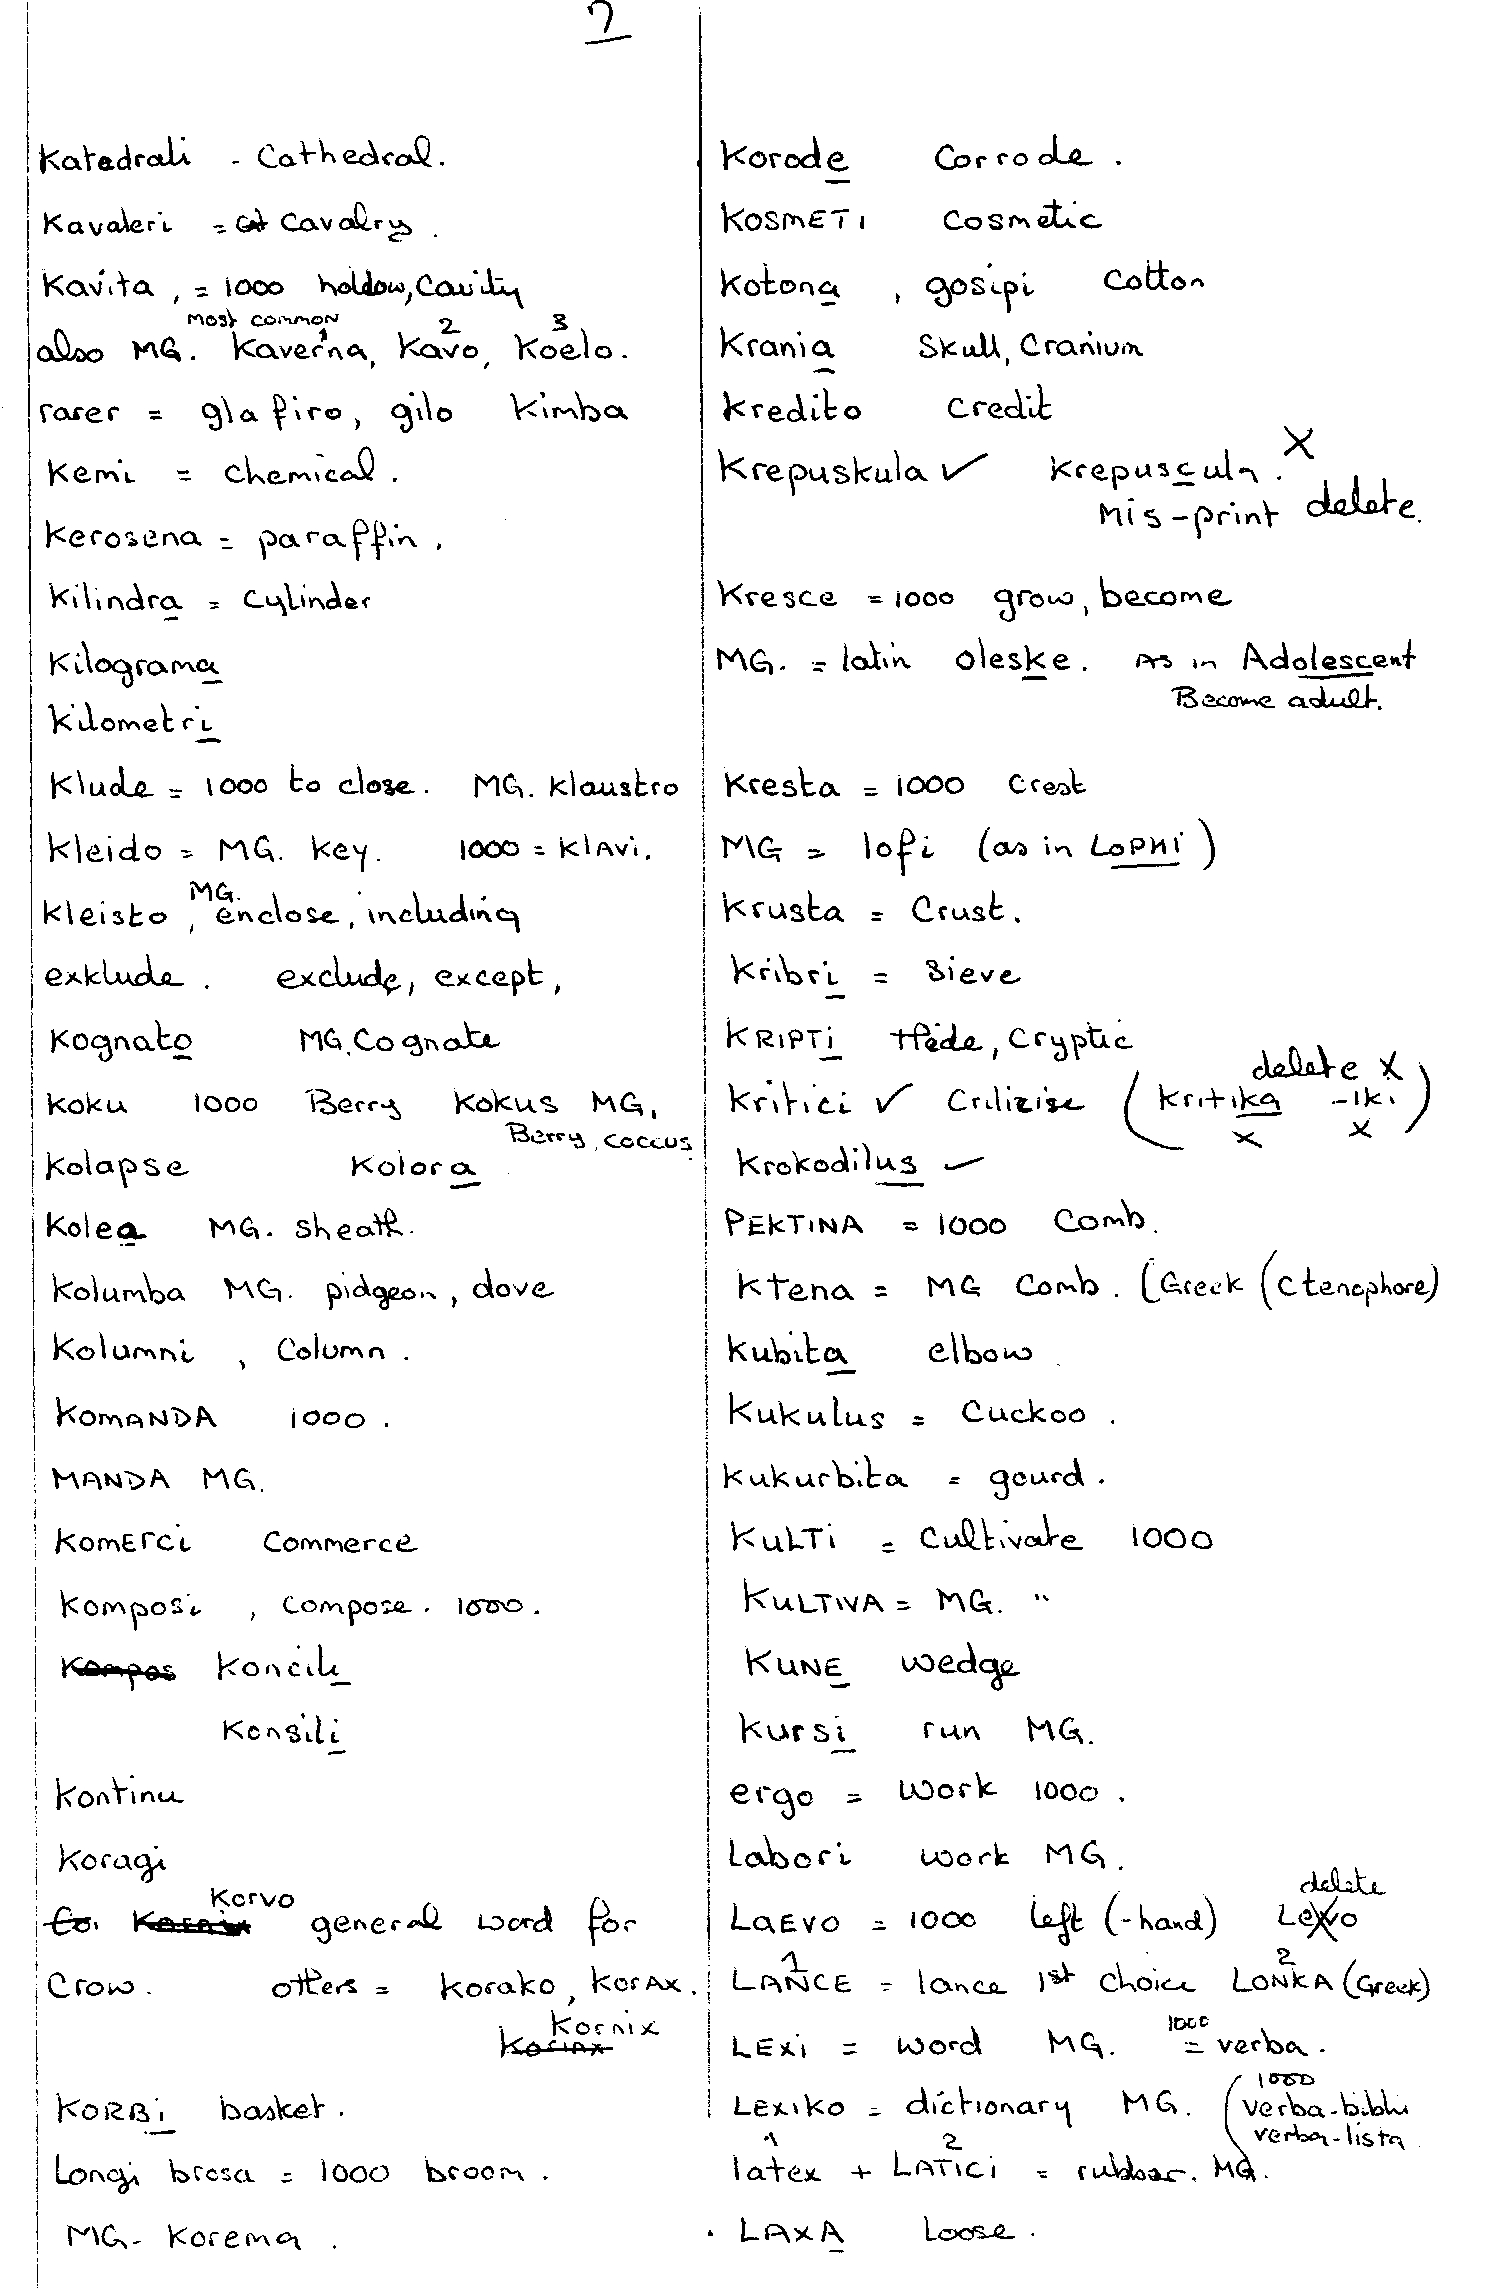 7
Katedrali - Cathedral.
Kavaleri = Cavalry.
Kavita, = 1000 hollow, Cavity
most common
1 2 3
also MG. Kaverna, Kavo, Koelo.
rarer = glafiro, gilo Kimba
Kemi = chemical.
Kerosena = paraffin.
Kilindra = Cylinder
Kilograma
Kilometri
Klude = 1000 to close. MG. Klaustro
Kleido = MG. Key. 1000 = Klavi.
MG.
Kleisto, enclose, including
exklude. exclude, except,
Kognato MG. Cognate
Koku 1000 Berry Kokus MG.
Berry, coccus
Kolapse Kolora
Kolea MG. Sheath.
Kolumba MG. pidgeon, dove
Kolumni, Column.
KOMANDA 1000.
MANDA MG.
KOMERCI Commerce
Komposi, Compose. 1000.
Kompos Koncili
Konsili
Kontinu
Koragi
Korvo
general word for
Crow. others = Korako, Korax.
Kornix
KORBi basket.
Longi brosa = 1000 broom.
MG- Korema.
Korode Corrode.
KOSMETI Cosmetic
Kotona, gosipi Cotton
Krania Skull, Cranium
Kredito Credit
X
Krepuskula ✓ Krepuscula.
Mis-print delete.
Kresce = 1000 grow, become
MG. = latin oleske. As in Adolescent
Become adult.
Kresta = 1000 Crest
MG = lofi (as in LOPHI)
Krusta = Crust.
Kribri = Sieve
KRIPTi Hide, Cryptic
delete X
Kritici ✓ Critizise (Kritika -iki)
X X
Krokodilus ✓
PEKTINA = 1000 Comb.
Ktena = MG Comb. (Greek (Ctenophore)
Kubita elbow.
Kukulus = Cuckoo.
Kukurbita = gourd.
KULTi = Cultivate 1000
KULTIVA = MG. "
KUNE wedge
Kursi run MG.
ergo = work 1000.
Labori work MG.
delete
LAEVO = 1000 left (-hand) LEXVO
1 2
LANCE = lance 1st choice LONKA (Greek)
1000
LEXi = word MG. = verba.
1000
LEXIKO = dictionary MG. (verba-bibli
verba-lista
1 2
latex + LATICI = rubber. MG.
. LAXA Loose.